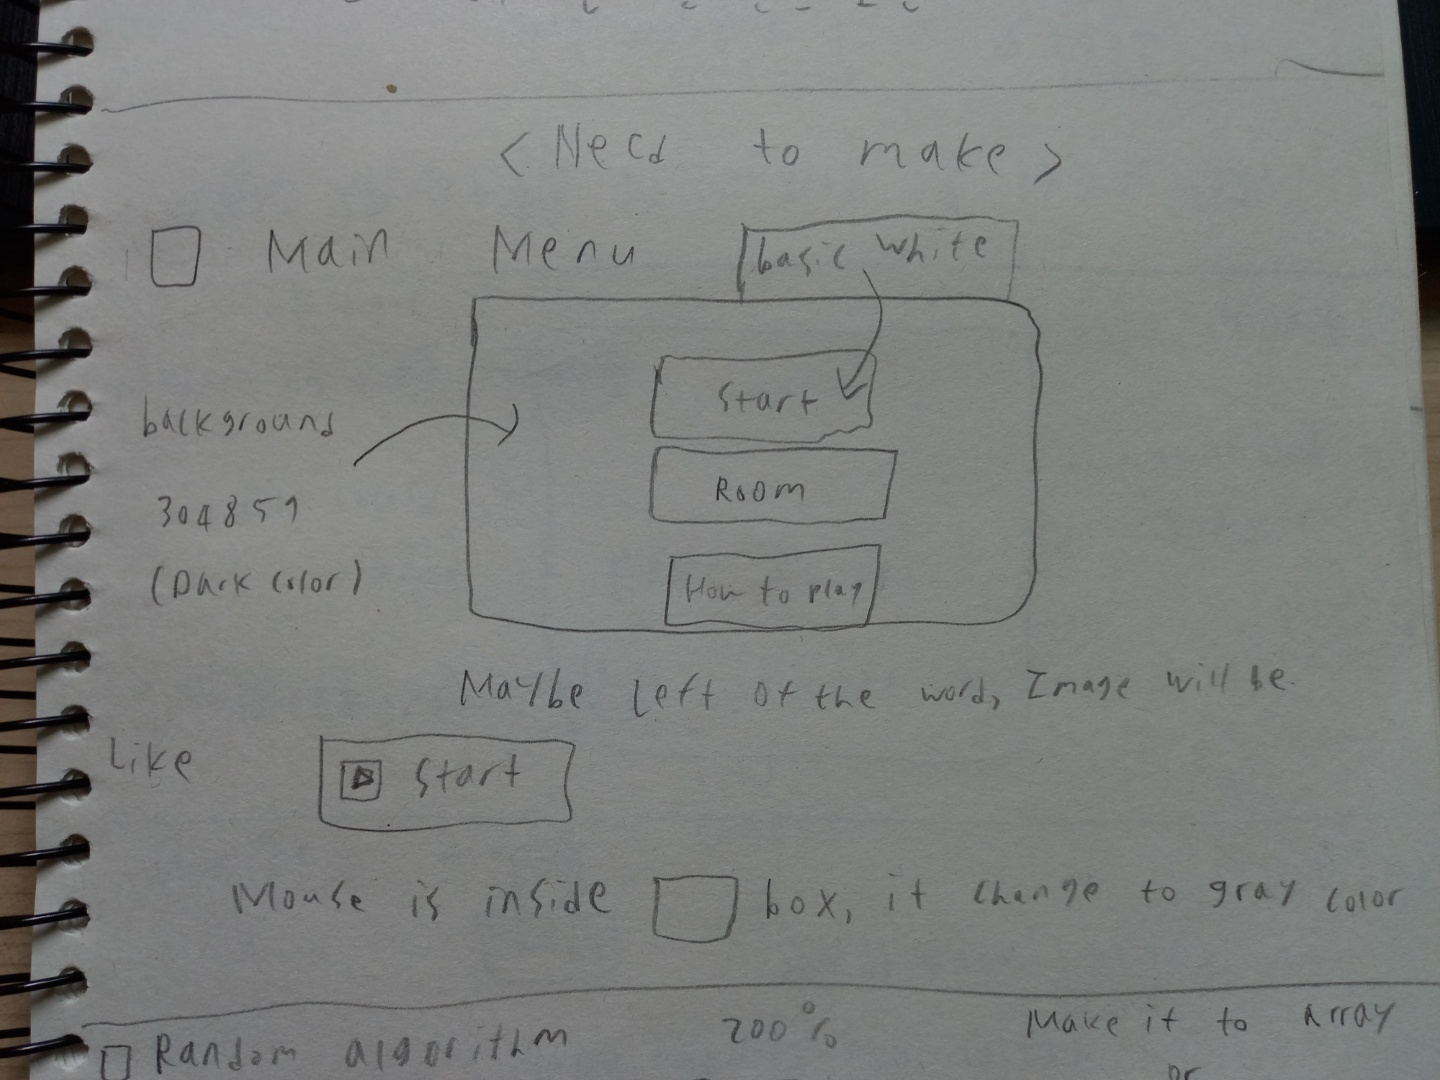 < Need to make >
Main Menu basic white
Start
background
Room
304859
(Dark color)
How to play
Maybe left of the word, Image will be.
Like Start
Mouse is inside box, it change to gray color
Random algorithm 200% Make it to Array
or